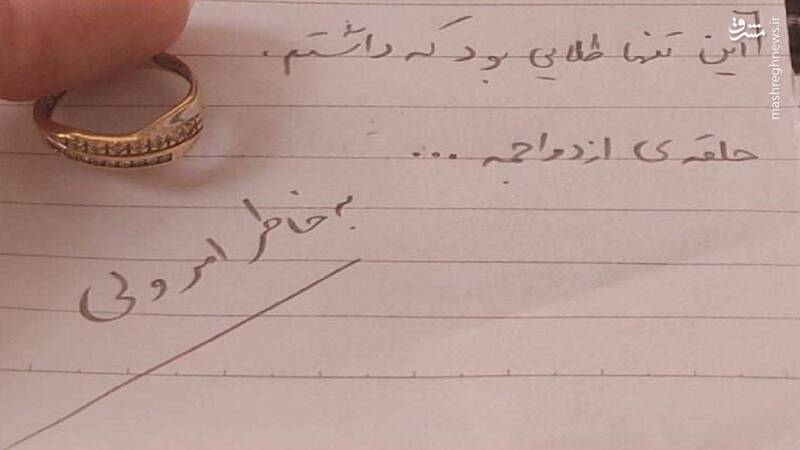 این تنها طلایی بود که داشتم.
حلقه‌ی ازدواجمه ...
به خاطر امر ولی
مشرق
mashreghnews.ir